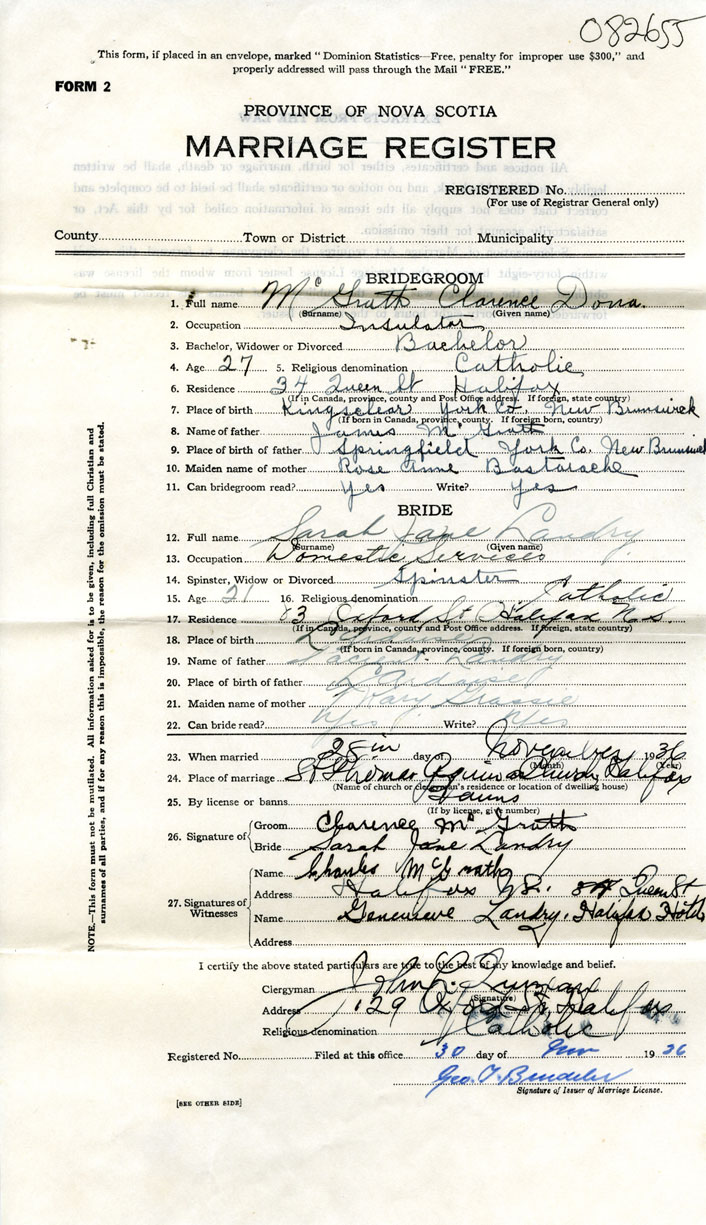 082655
This form, if placed in an envelope, marked " Dominion Statistics—Free, penalty for improper use $300," and
properly addressed will pass through the Mail " FREE."
FORM 2
PROVINCE OF NOVA SCOTIA
MARRIAGE REGISTER
REGISTERED No.
(For use of Registrar General only)
County Town or District Municipality
BRIDEGROOM
1. Full name McGrath Clarence Dona.
(Surname) (Given name)
2. Occupation Insulator
3. Bachelor, Widower or Divorced Bachelor
4. Age 27 5. Religious denomination Catholic
6. Residence 34 Queen St Halifax
(If in Canada, province, county and Post Office address. If foreign, state country)
7. Place of birth Kingsclear York Co. New Brunswick
(If born in Canada, province, county. If foreign born, country)
8. Name of father James McGrath
9. Place of birth of father Springfield York Co. New Brunswick
10. Maiden name of mother Rose Anne Bastarache
11. Can bridegroom read? Yes Write? Yes
BRIDE
12. Full name Sarah Jane Landry
(Surname) (Given name)
13. Occupation Domestic Services
14. Spinster, Widow or Divorced Spinster
15. Age 21 16. Religious denomination Catholic
17. Residence 83 Oxford St Halifax N.S.
(If in Canada, province, county and Post Office address. If foreign, state country)
18. Place of birth
(If born in Canada, province, county. If foreign born, country)
19. Name of father Landry
20. Place of birth of father L'Ardoise
21. Maiden name of mother Mary
22. Can bride read? Yes Write? Yes
23. When married 28 day of November 1936
(Month) (Year)
24. Place of marriage St Thomas Aquinas Church, Halifax
(Name of church or clergyman's residence or location of dwelling house)
25. By license or banns Banns
(If by license, give number)
26. Signature of Groom Clarence McGrath
Bride Sarah Jane Landry
27. Signatures of Witnesses
Name Charles McGrath
Address Halifax NS. 34 Queen St
Name Genevieve Landry. Halifax Hotel
Address
I certify the above stated particulars are true to the best of my knowledge and belief.
Clergyman John L.
(Signature)
Address 129 Oxford St, Halifax
Religious denomination Catholic
Registered No. Filed at this office 30 day of Nov 1936
Geo.
Signature of Issuer of Marriage License.
[SEE OTHER SIDE]
NOTE.—This form must not be mutilated. All information asked for is to be given, including full Christian and
surnames of all parties, and if for any reason this is impossible, the reason for the omission must be stated.